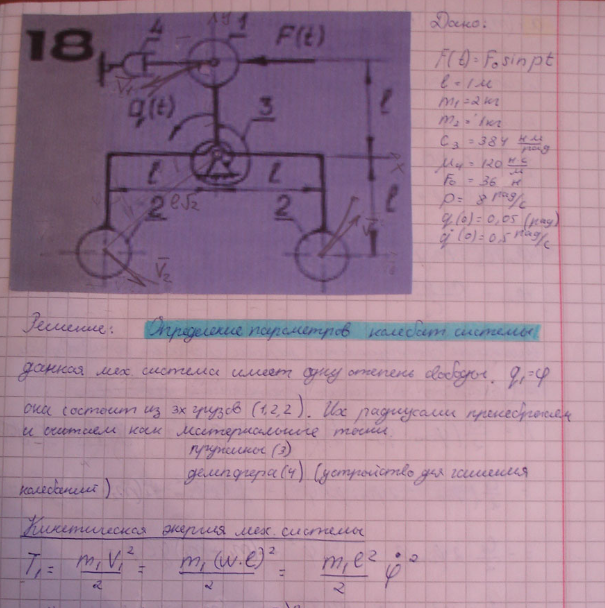 18
4
1
F(t)
V₁
q(t)
3
l
l
l
x
2
l√2
2
l
V₂
Дано:
F(t) = F₀ sin pt
l = 1 м
m₁ = 2 кг
m₂ = 1 кг
C₃ = 384 нм/рад
μ₄ = 120 нс/м
F₀ = 36 н
p = 8 рад/с
q(0) = 0,05 (рад)
q̇(0) = 0,5 рад/с
Решение: Определение параметров колебат системы
данная мех система имеет одну степень свободы. q₁=φ
она состоит из 3х грузов (1,2,2). Их радиусами пренебрежем
и считаем как материальные точки
пружины (3)
демпфера (4) (устройство для гашения
колебаний)
Кинетическая энергия мех. системы
T₁ = m₁V₁²/2 = m₁(w·l)²/2 = m₁l²/2 φ̇²